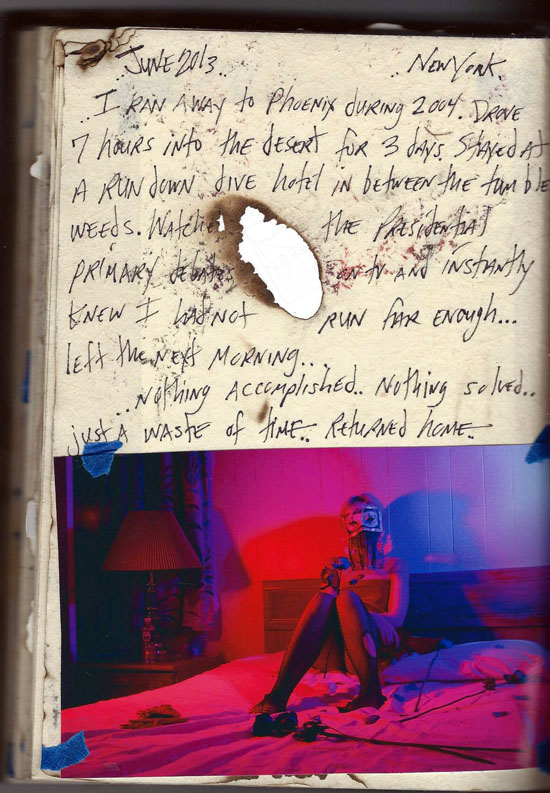 ..June 2013.. ..New York.
..I ran away to Phoenix during 2004. Drove
7 hours into the desert for 3 days. Stayed at
a run down dive hotel in between the tumble
weeds. Watche the Presidential
primary debates on tv and instantly
knew I had not run far enough...
left the next morning...
..nothing accomplished.. nothing solved..
just a waste of time.. Returned home..